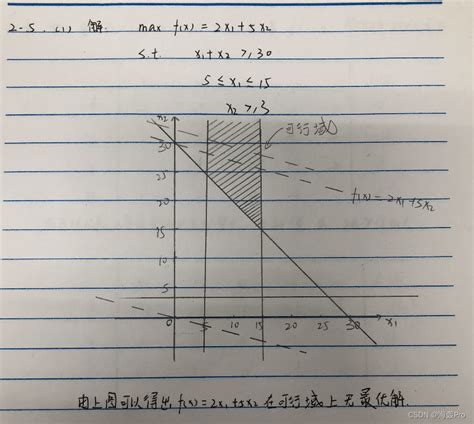 2-5. (1) 解. max f(x) = 2x₁+5x₂
s.t. x₁+x₂ ≥ 30
5 ≤ x₁ ≤ 15
x₂ ≥ 3
x₂
可行域D
30
25
f(x) = 2x₁+5x₂
20
15
10
5
0 5 10 15 20 25 30 x₁
由上图可以得出 f(x) = 2x₁+5x₂ 在可行域上无最优解.
CSDN @海轰Pro